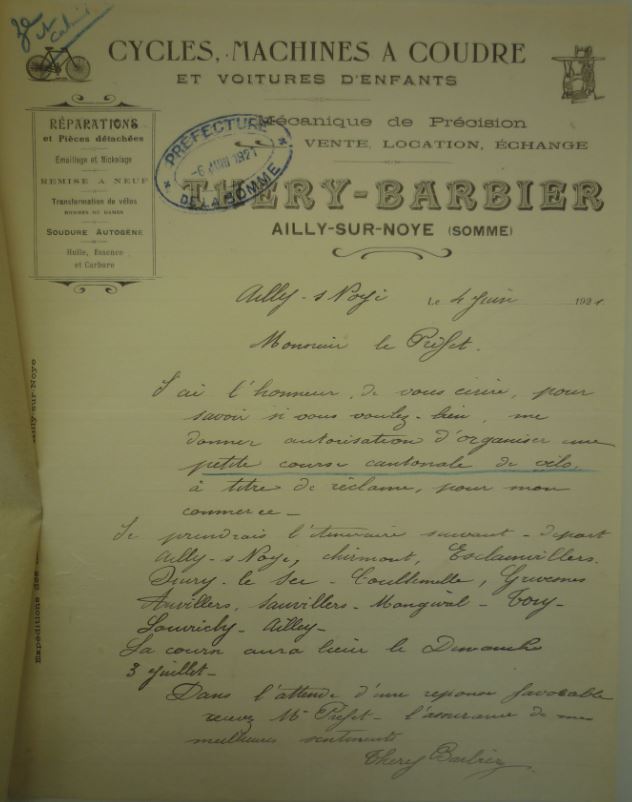 3e
et
cabinet
CYCLES, MACHINES A COUDRE
ET VOITURES D'ENFANTS
Mécanique de Précision
VENTE, LOCATION, ÉCHANGE
THERY-BARBIER
AILLY-SUR-NOYE (SOMME)
RÉPARATIONS
et Pièces détachées
Émaillage et Nickelage
REMISE A NEUF
Transformation de vélos
HOMMES OU DAMES
SOUDURE AUTOGÈNE
Huile, Essence
et Carbure
PREFECTURE
-6 JUIN 1921
DE LA SOMME
Ailly-s Noye Le 4 Juin 1921
Monsieur le Préfet.
J'ai l'honneur de vous écrire, pour
savoir si vous voulez-bien, me
donner autorisation d'organiser une
petite course cantonale de vélo,
à titre de réclame, pour mon
commerce -
Je prendrais l'itineraire suivant - départ
Ailly-s Noye, chirmont, Esclainvillers.
Quiry-le Sec - Coullemelle, Grivesnes
Aubvillers, Sauvillers-Mongival - Tory -
Louvrechy - Ailly -
La course aura lieur le Dimanche
3 Juillet -
Dans l'attende d'une reponse favorable
recevez Mr Préfet - l'assurance de mes
meilleures sentiments
Thery Barbier
Expéditions des
Ailly-sur-Noye